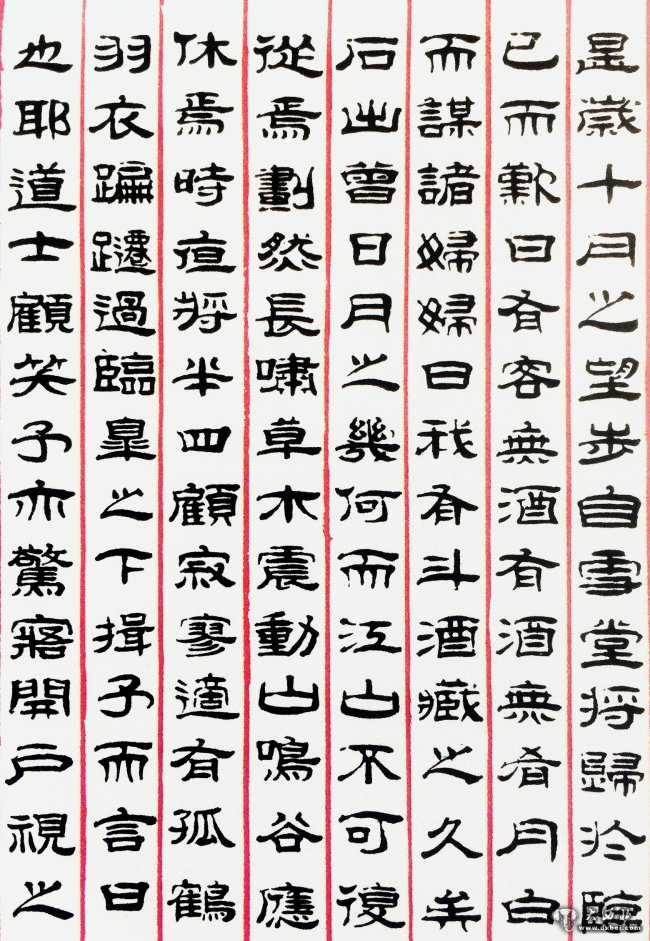 是歲十月之望步自雪堂將歸於臨
已而歎曰有客無酒有酒無肴月白
而謀諸婦婦曰我有斗酒藏之久矣
石出曾日月之幾何而江山不可復
從焉劃然長嘯草木震動山鳴谷應
休焉時夜將半四顧寂寥適有孤鶴
羽衣蹁躚過臨皋之下揖予而言曰
也耶道士顧笑予亦驚寤開戶視之
www.dxbei.com